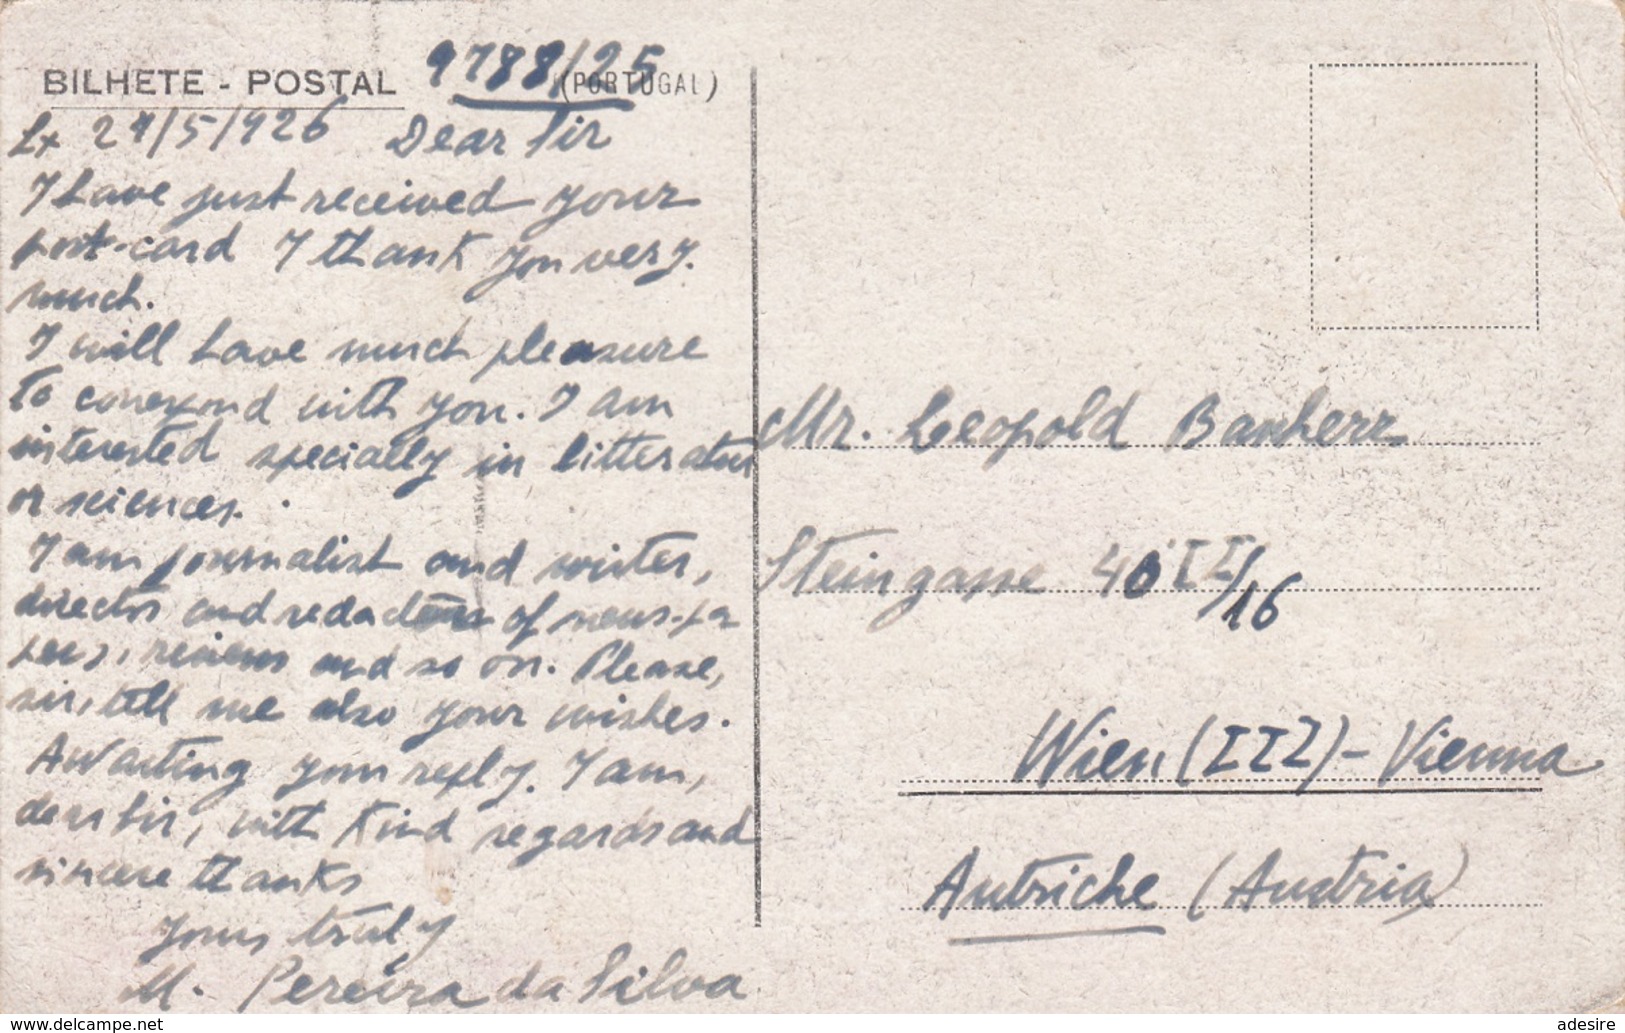 BILHETE - POSTAL 9788/25 (PORTUGAL)
Lx 27/5/926 Dear Sir
I have just received your
post-card I thank you very
much.
I will have much pleasure
to correspond with you. I am
interested specially in litteratur
or sciences.
I am journalist and writer,
director and redacteur of news-pa
pers, reviews and so on. Please,
sir, tell me also your wishes.
Awaiting your reply. I am,
dear sir, with kind regards and
sincere thanks
Yours truly
M. Pereira da Silva
Mr. Leopold Banherz
Steingasse 40 II/16
Wien (III) - Vienna
Autriche (Austria)
adesire
delcampe.net